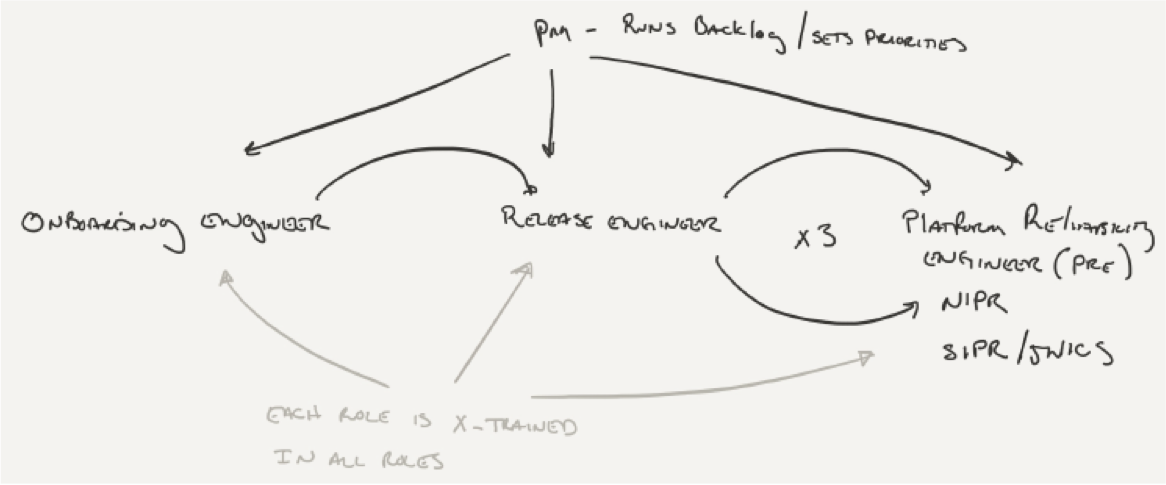 PM - RUNS BACKLOG/SETS PRIORITIES
ONBOARDING ENGINEER
RELEASE ENGINEER
x3
PLATFORM RELIABILITY
ENGINEER (PRE)
NIPR
SIPR/JWICS
EACH ROLE IS X-TRAINED
IN ALL ROLES